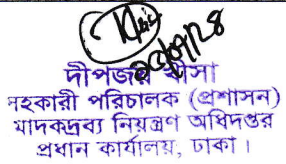 দীপজয় খীসা
সহকারী পরিচালক (প্রশাসন)
মাদকদ্রব্য নিয়ন্ত্রণ অধিদপ্তর
প্রধান কার্যালয়, ঢাকা।